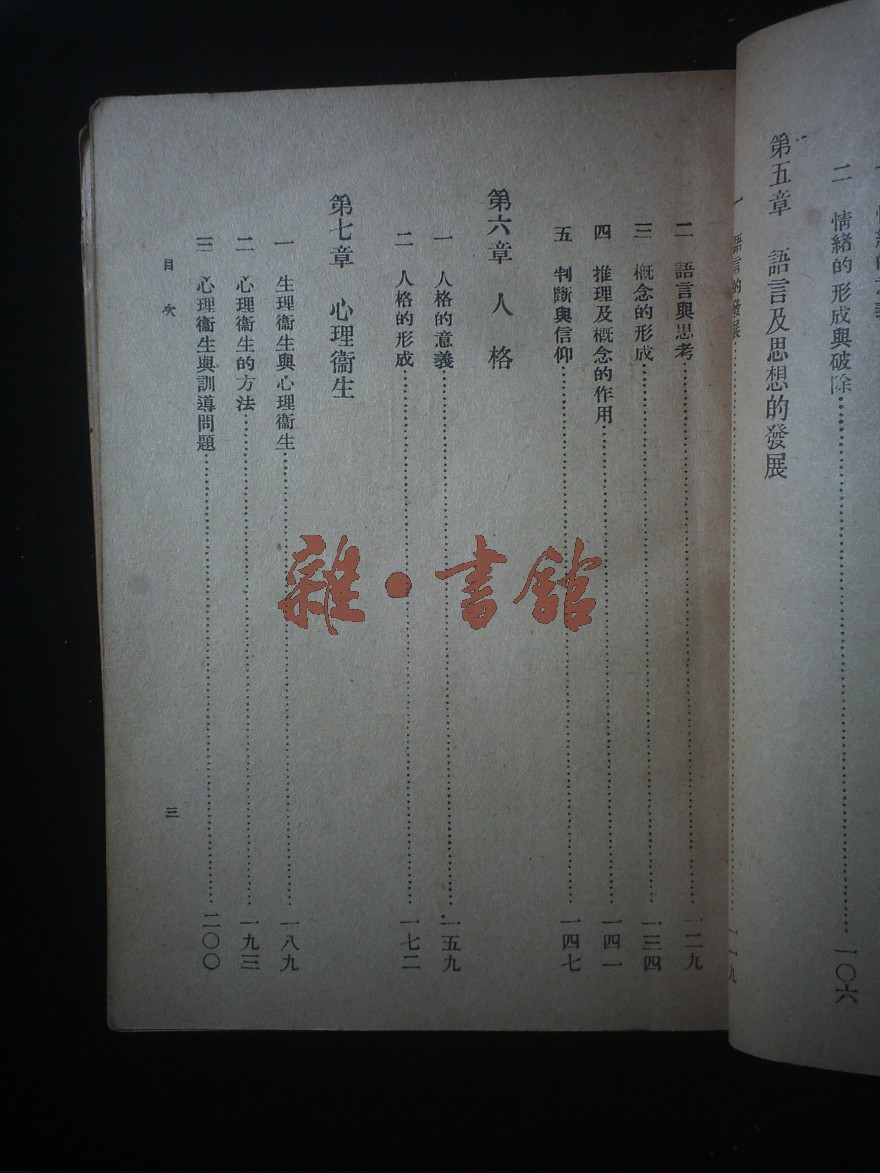 二　情緒的形成與破除……一〇六
第五章　語言及思想的發展
一　語言的發展……一一九
二　語言與思考……一二九
三　概念的形成……一三四
四　推理及概念的作用……一四一
五　判斷與信仰……一四七
第六章　人　格
一　人格的意義……一五九
二　人格的形成……一七二
第七章　心理衞生
一　生理衞生與心理衞生……一八九
二　心理衞生的方法……一九三
三　心理衞生與訓導問題……二〇〇
目　次
三
雜·書館